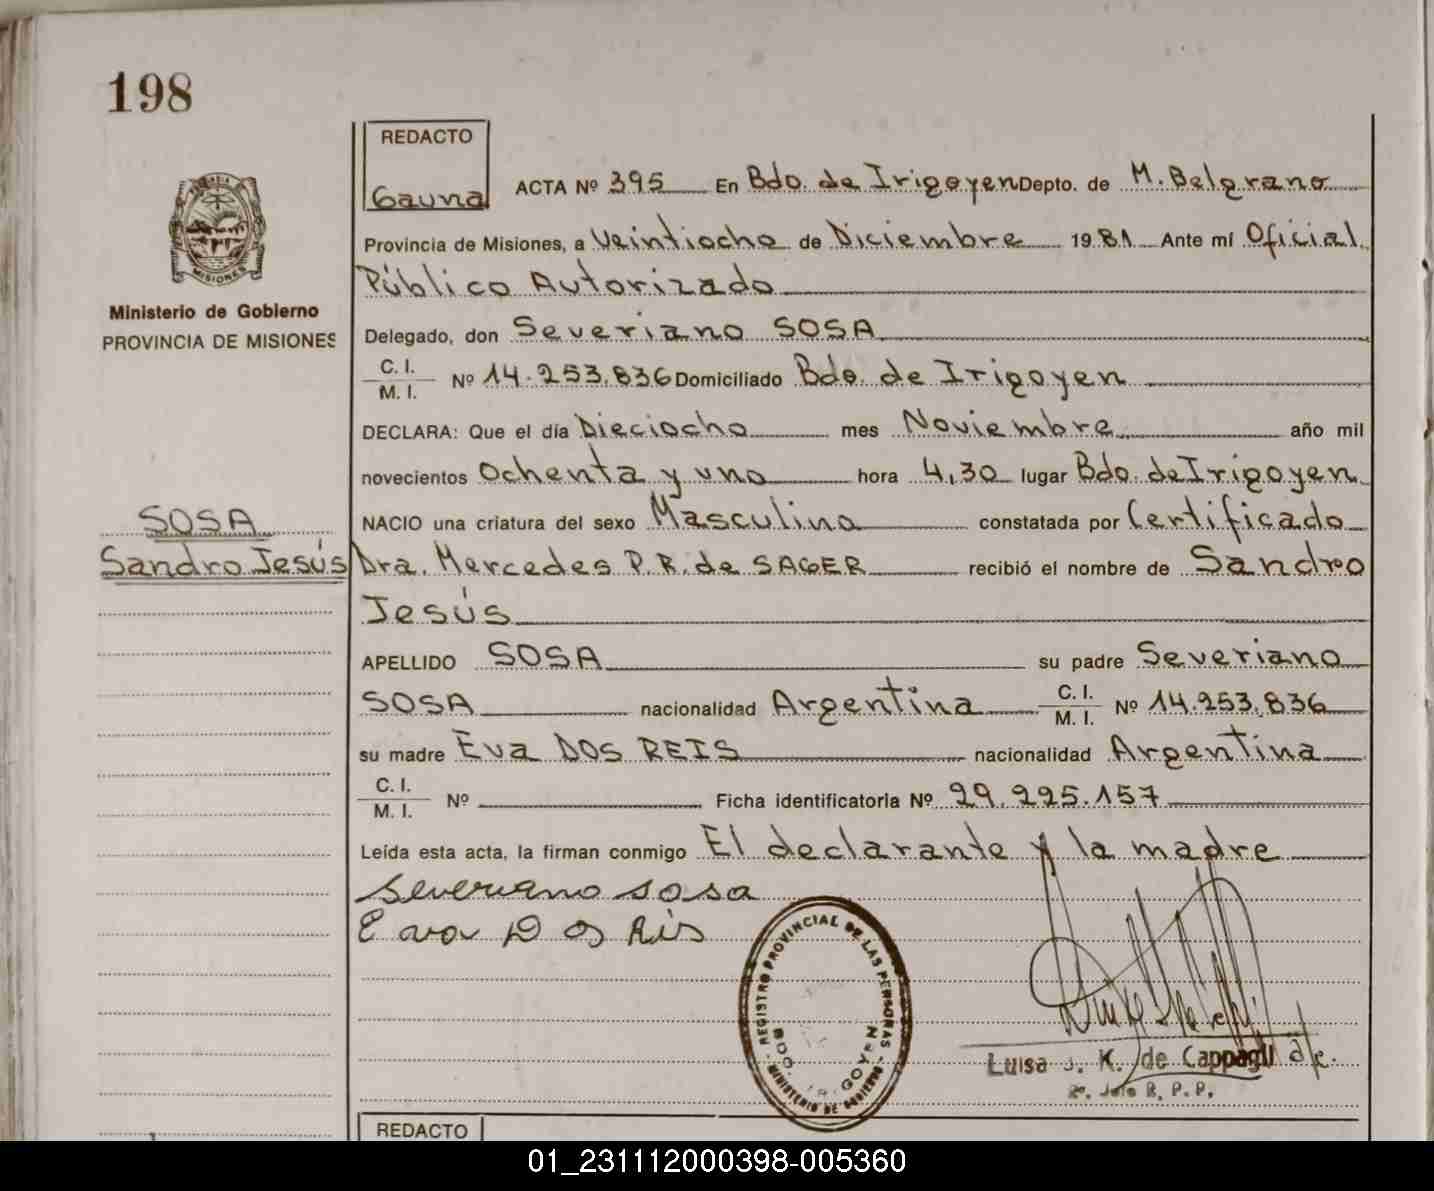 198
REDACTO
Gauna
ACTA Nº 395 En Bdo. de Irigoyen Depto. de M. Belgrano
Provincia de Misiones, a Veintiocho de Diciembre 1981 Ante mí Oficial
Público Autorizado
MISIONES
Ministerio de Gobierno
PROVINCIA DE MISIONES
Delegado, don Severiano SOSA
C. I.
M. I.
Nº 14.253.836 Domiciliado Bdo. de Irigoyen
DECLARA: Que el día Dieciocho mes Noviembre año mil
novecientos Ochenta y uno hora 4,30 lugar Bdo. de Irigoyen
SOSA
Sandro Jesús
NACIO una criatura del sexo Masculino constatada por Certificado
Dra. Mercedes P. R. de SAGER recibió el nombre de Sandro
Jesús
APELLIDO SOSA su padre Severiano
SOSA nacionalidad Argentina C. I. M. I. Nº 14.253.836
su madre Eva DOS REIS nacionalidad Argentina
C. I.
M. I.
Nº Ficha identificatoria Nº 29.225.157
Leída esta acta, la firman conmigo El declarante y la madre
Severiano Sosa
Eva D os Ris
REGISTRO PROVINCIAL DE LAS PERSONAS
MINISTERIO DE GOBIERNO
BDO. IRIGOYEN
Luisa K. de Cappagli
2º. Jefe R. P. P.
REDACTO
01_231112000398-005360